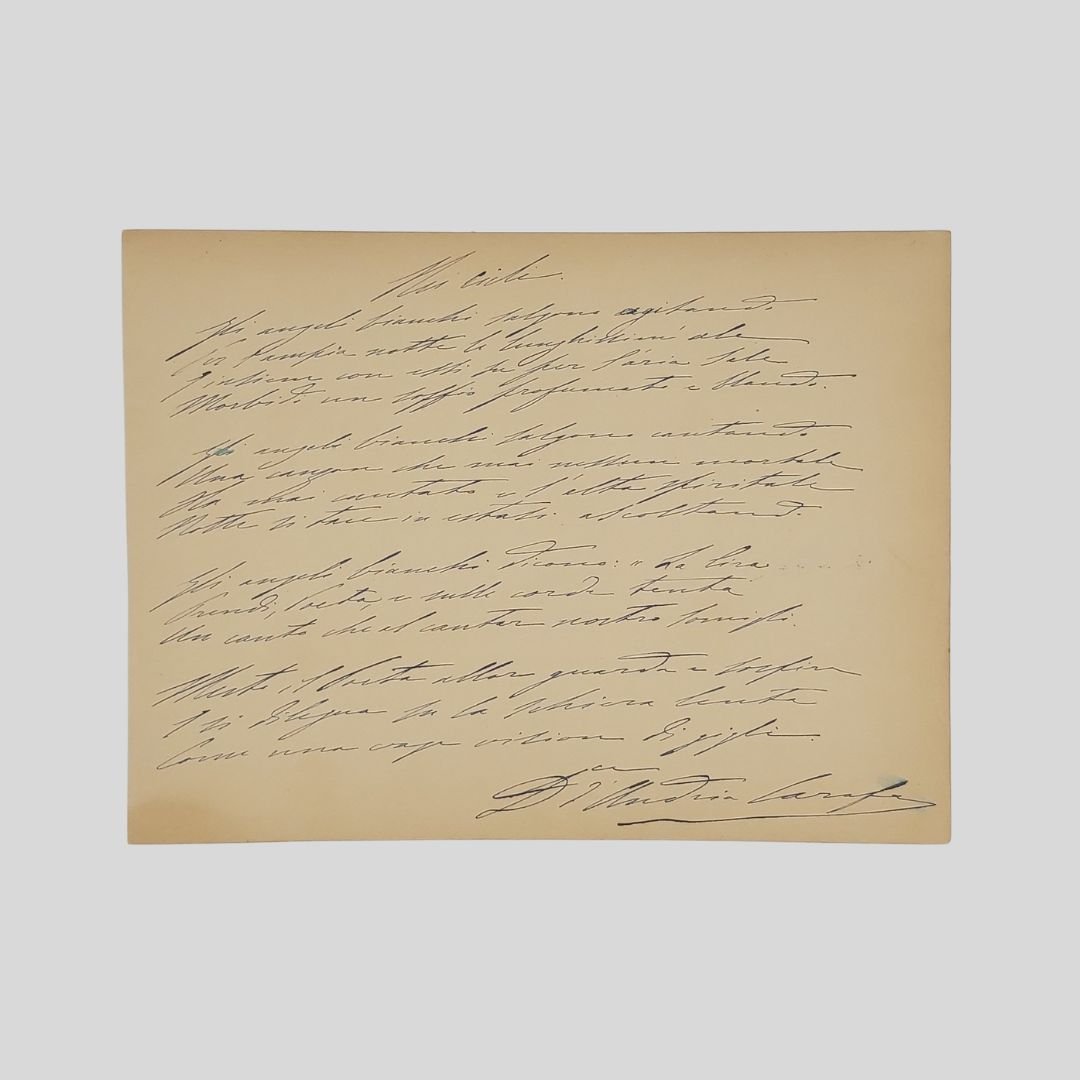 Nei cieli.
Gli angeli bianchi salgono agitando
Per l'ampia notte le lunghissim' ale
Insieme con essi su per l'aria sale
Morbido un soffio profumato e blando.
Gli angeli bianchi salgono cantando
Una canzon che mai nessun mortale
Ha mai cantato e l'alta spiritale
Notte si tace in estasi ascoltando.
Gli angeli bianchi dicono: "La lira
Prendi, Poeta, e sulle corde tenta
Un canto che al cantar nostro somigli.
Mesto il Poeta allor guarda e sospira
E si dilegua su la schiera lenta
Come una vaga vision di gigli.
D.ssa d'Andria Carafa